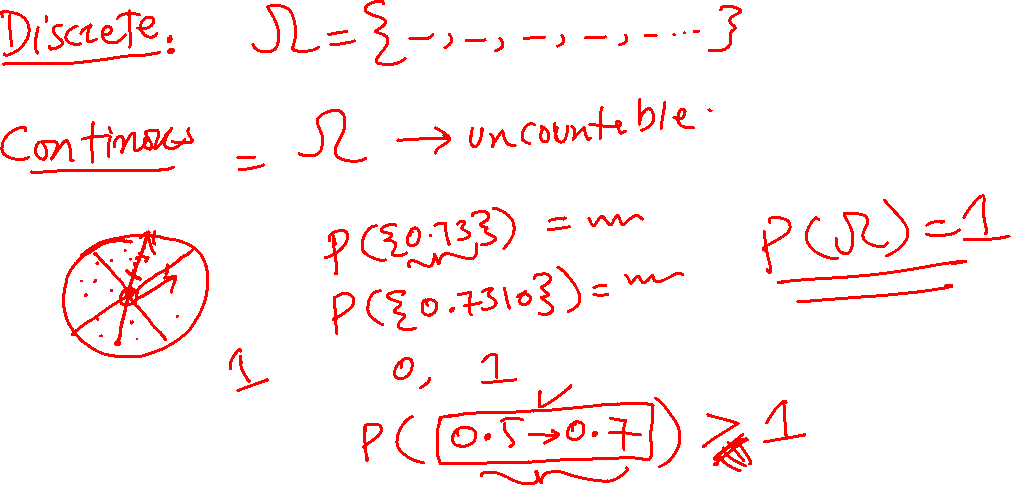 Discrete: Ω = {–, –, –, –, – ...}
Continous = Ω → uncounteble.
P({0.73}) =
P(Ω) = 1
P({0.7310}) =
1 0, 1
P(0.5→0.7) ≥ 1